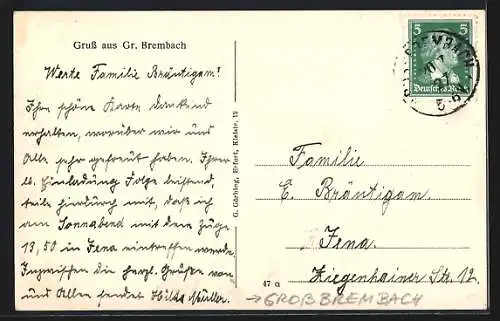 Gruß aus Gr. Brembach
Werte Familie Bräutigam!
Ihre schöne Karte dankend
erhalten, worüber wir uns
Alle sehr gefreut haben. Ihrer
lb. Einladung Folge leistend,
teile hierdurch mit, daß ich
am Sonnabend mit dem Zuge
13,50 in Jena eintreffen werde.
Inzwischen die herzl. Grüße von
uns Allen sendet Hilde Müller.
G. Göching, Erfurt, Kleistr. 12
5 5
Deutsches Reich
27
5-6
Familie
E. Bräutigam.
Jena.
Ziegenhainer Str. 12.
47 a
→ GROẞBREMBACH